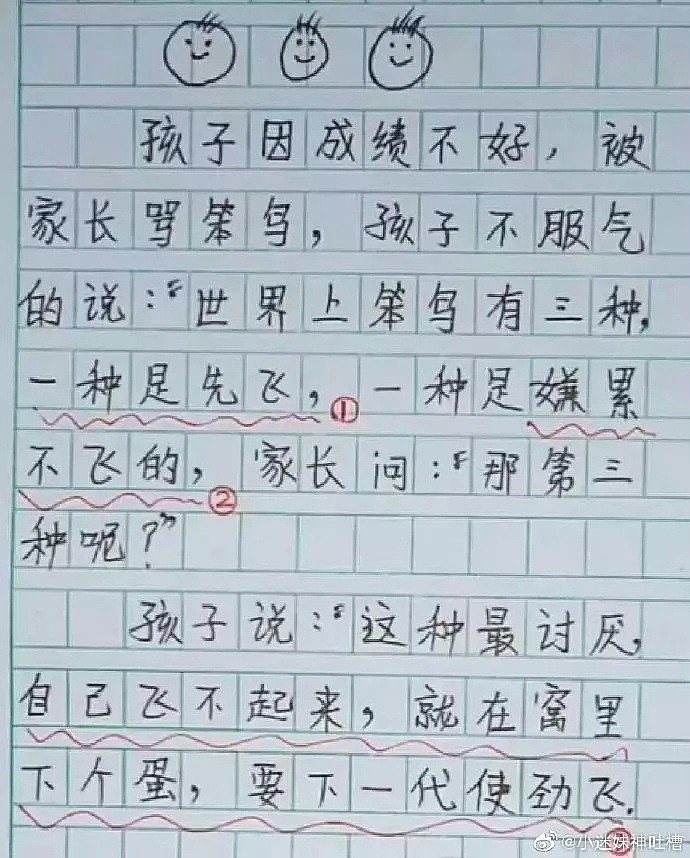 孩子因成绩不好，被
家长骂笨鸟，孩子不服气
的说：“世界上笨鸟有三种，
一种是先飞，①一种是嫌累
不飞的，②家长问：“那第三
种呢？”
孩子说：“这种最讨厌，
自己飞不起来，就在窝里
下个蛋，要下一代使劲飞.
③
@小迷妹神吐槽